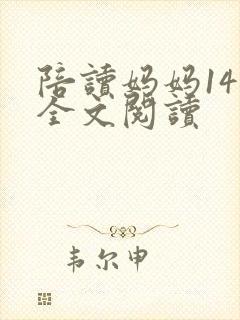 陪讀妈妈14
全文閱讀
韦尔申